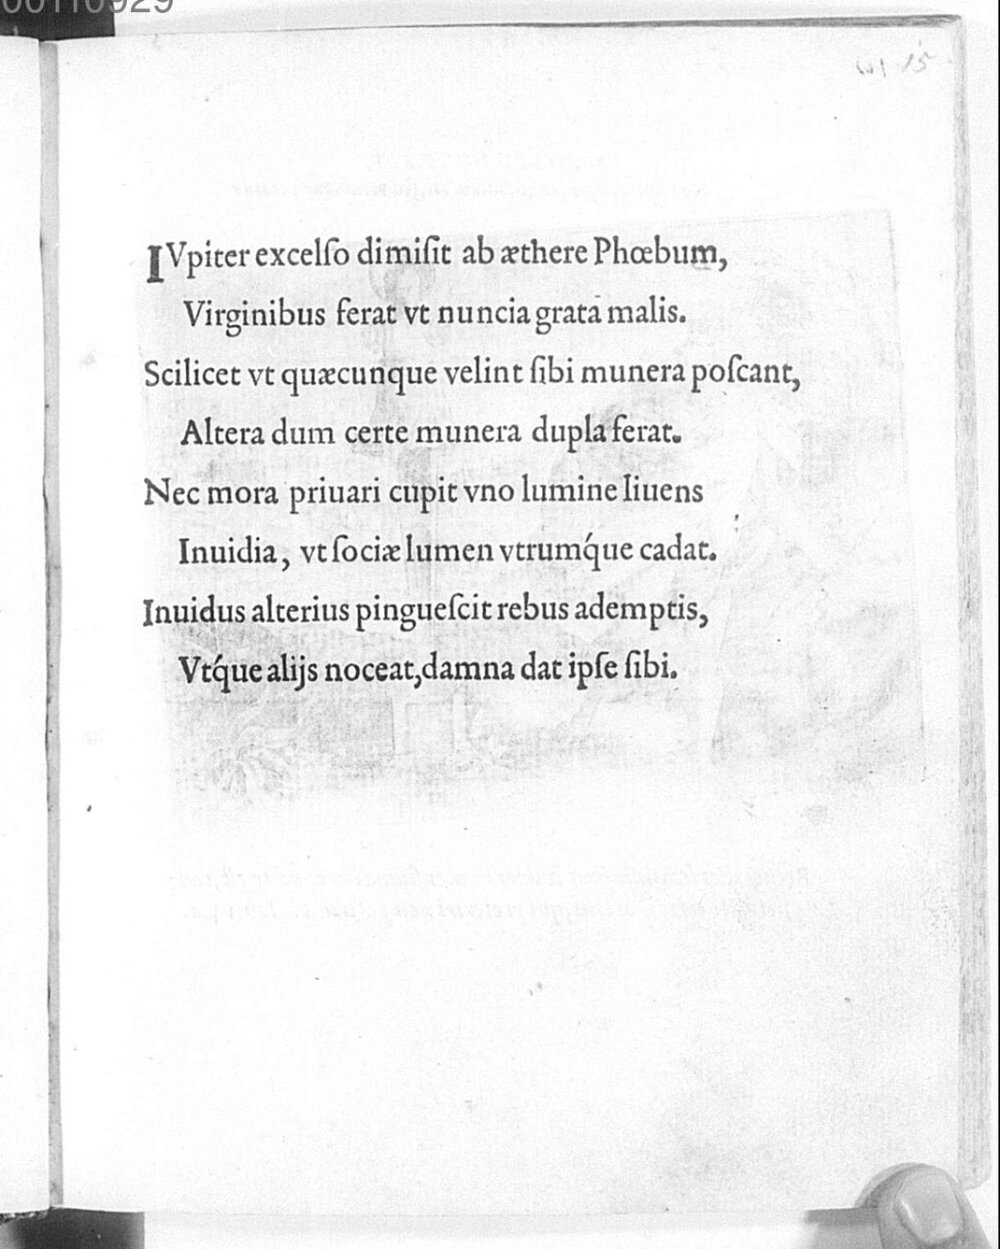 00110929
15
IVpiter excelſo dimiſit ab æthere Phœbum,
Virginibus ferat vt nuncia grata malis.
Scilicet vt quæcunque velint ſibi munera poſcant,
Altera dum certe munera dupla ferat.
Nec mora priuari cupit vno lumine liuens
Inuidia, vt ſociæ lumen vtrumq́ue cadat.
Inuidus alterius pingueſcit rebus ademptis,
Vtq́ue alijs noceat,damna dat ipſe ſibi.